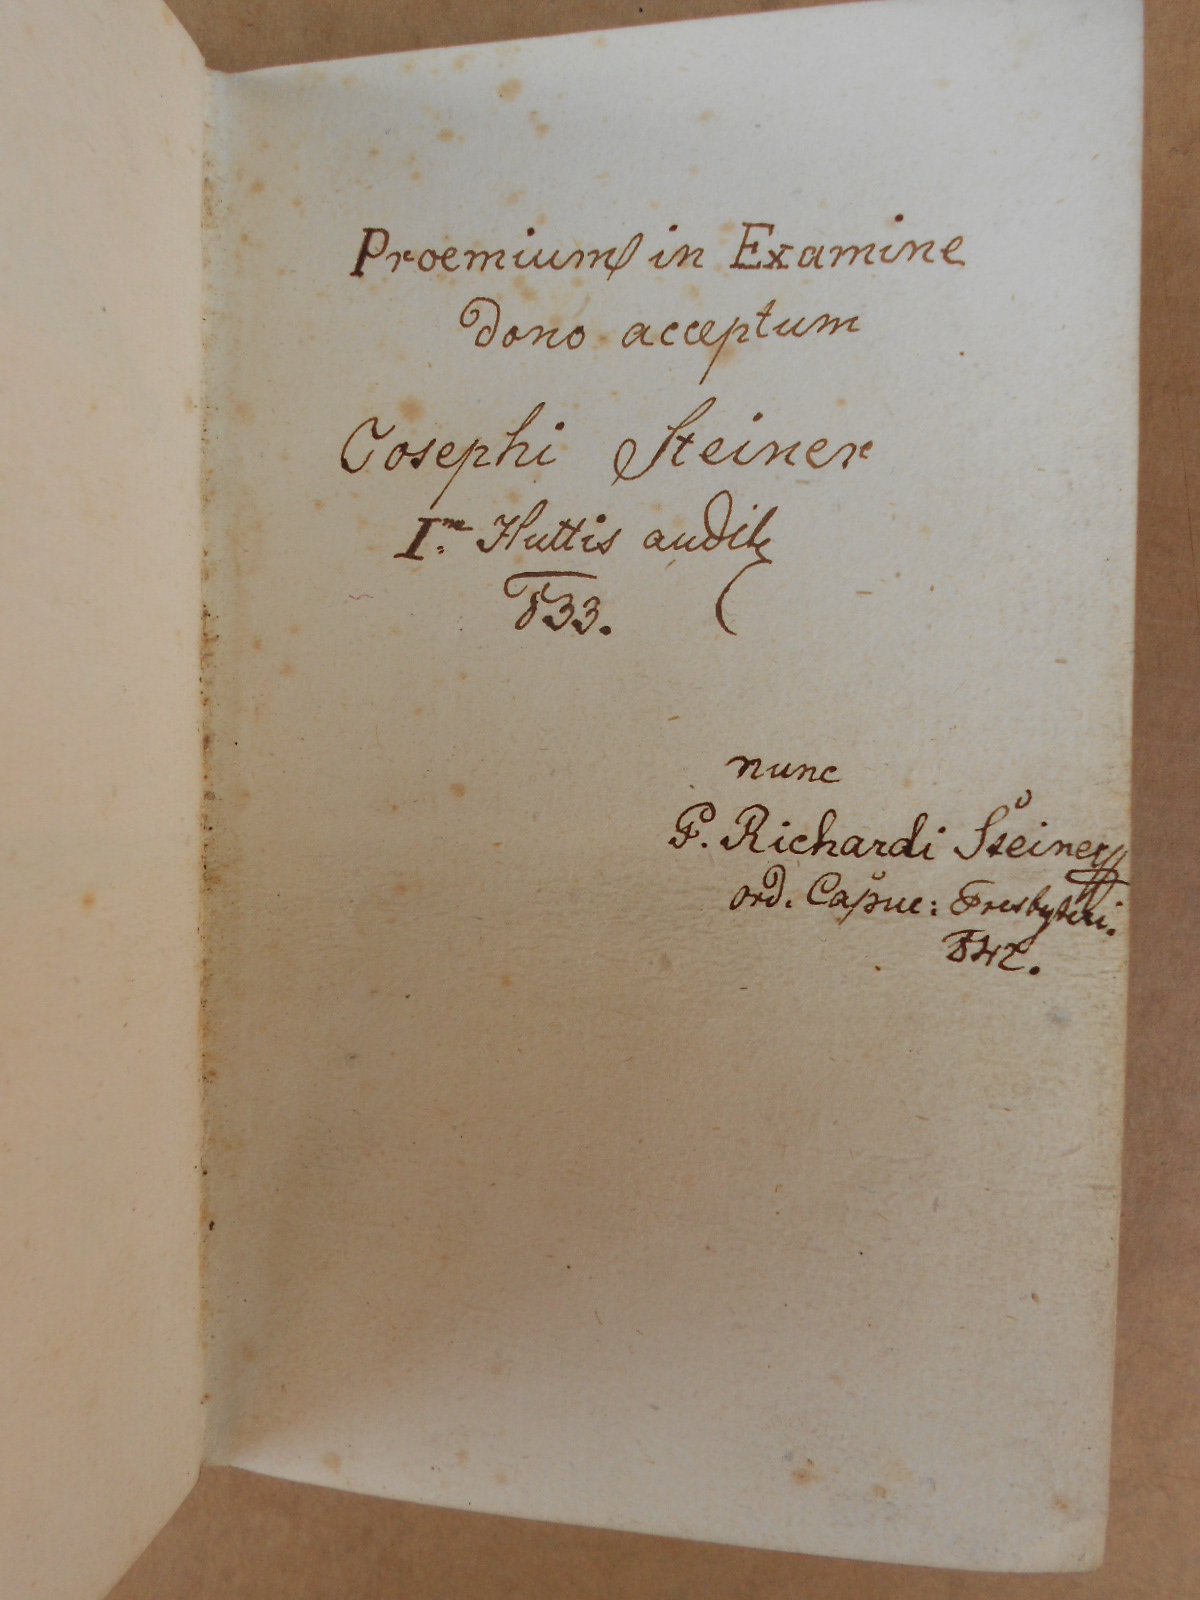 Proemium in Examine
dono acceptum
Josephi Steiner
I.m Huttis audit
833.
nunc
P. Richardi Steiner
ord. Capuc: Presbyteri.
842.